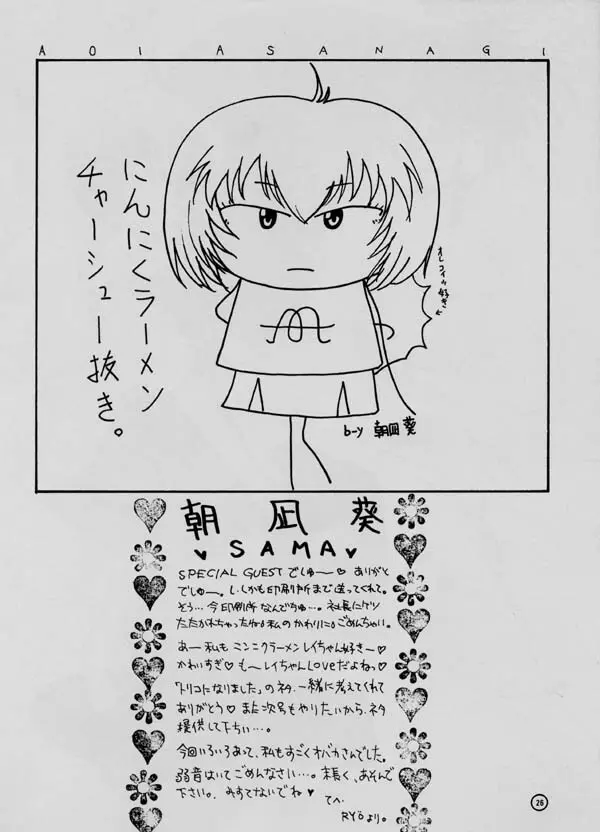 AOI ASANAGI
にんにくラーメン
チャーシュー抜き。
オレコイツ好き
by 朝凪葵
朝凪葵
♥ SAMA ♥
SPECIAL GUEST でしゅ〜♡ ありがと
でしゅー。しかも印刷所まで送ってくれて。
そう…今印刷所なんでちゅ…。社長にケツ
たたかれちゃったね。私のかわりに。ごめんちゃい。
あー私もニンニクラーメンレイちゃん好き〜♡
かわいすぎ♡ も〜レイちゃんLoveだよねっ♡
「トリコになりました」のネタ、一緒に考えてくれて
ありがとう♡ また次号もやりたいから、ネタ
提供して下ちい…。
今回いろいろあって、私もすごくオバカさんでした。
弱音はいてごめんなさい…。末長く、あそんで
下さい。みすてないでね♥
てへ
RYÖより。
26